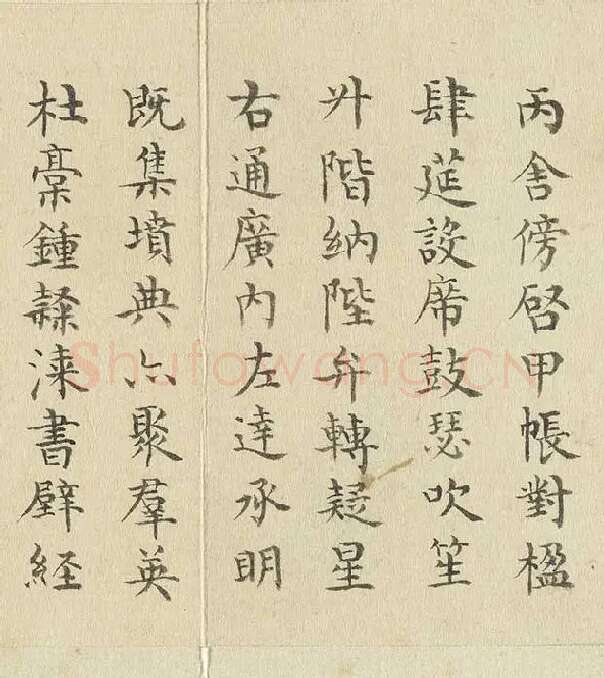 丙舍傍啓甲帳對楹
肆莚設席鼓瑟吹笙
升階納陛弁轉疑星
右通廣內左達承明
既集墳典亦聚羣英
杜稾鍾隸漆書壁経
Shufawang.CN